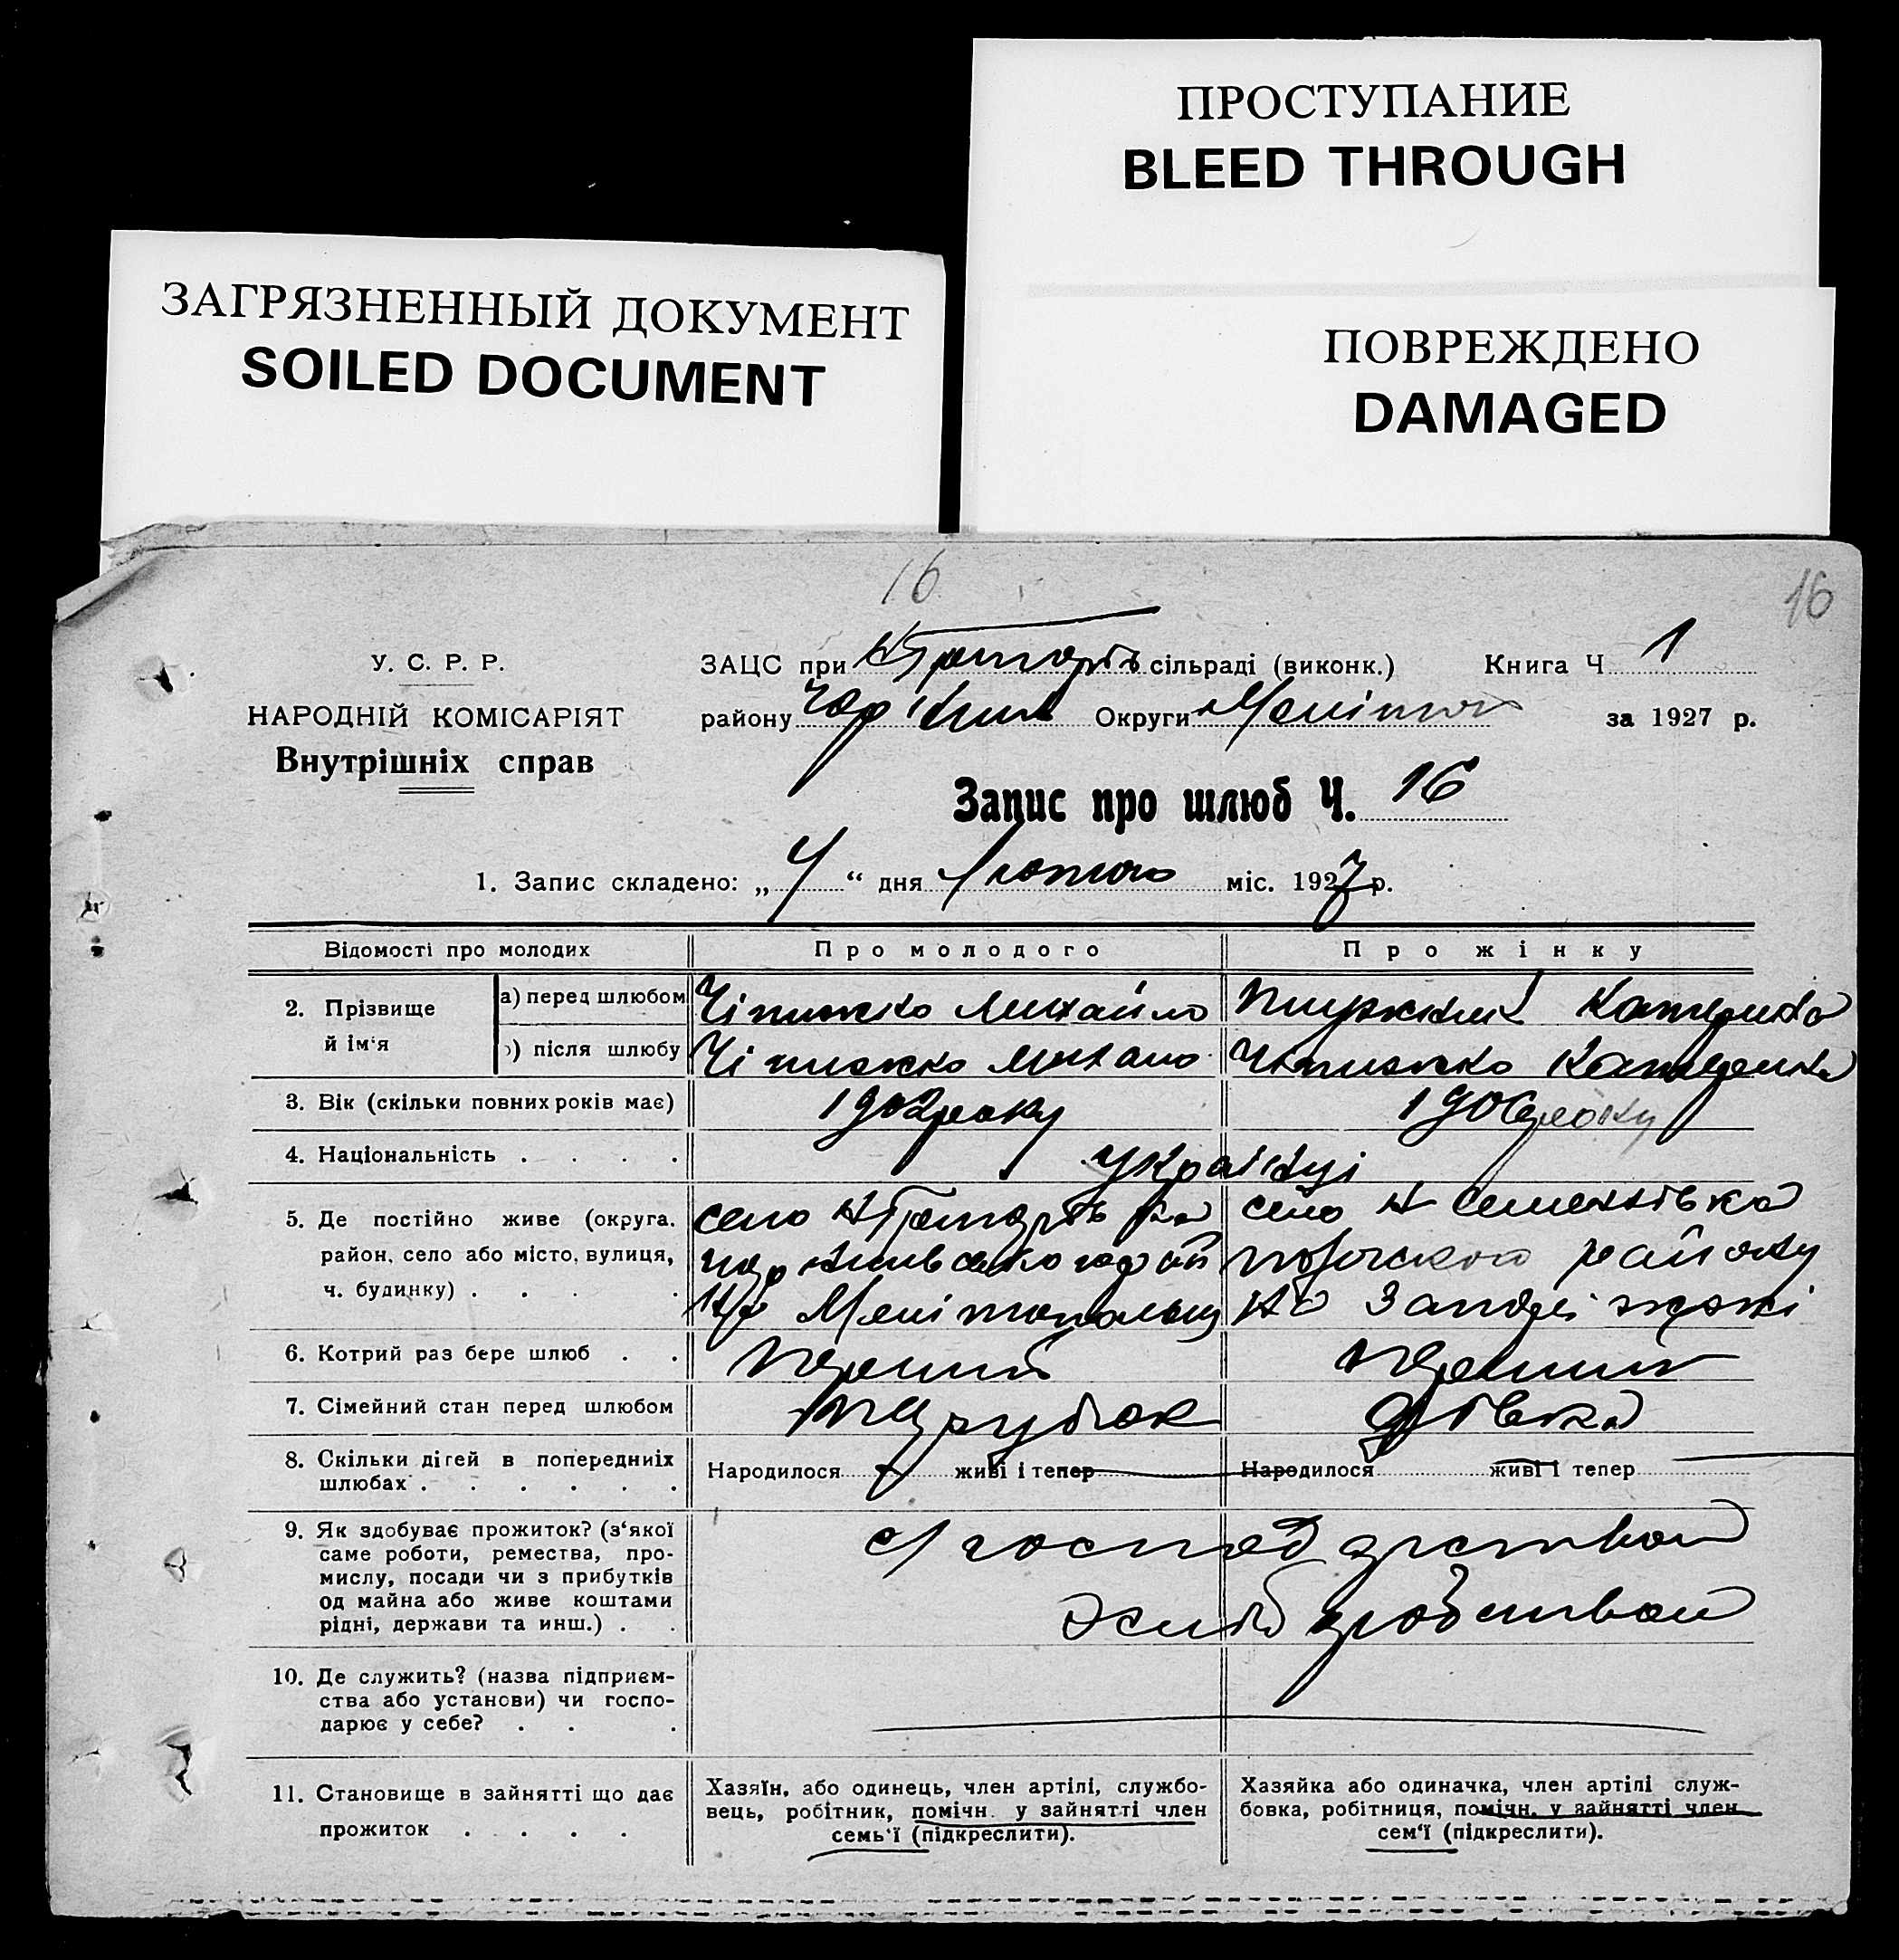 ПРОСТУПАНИЕ
BLEED THROUGH
ЗАГРЯЗНЕННЫЙ ДОКУМЕНТ
SOILED DOCUMENT
ПОВРЕЖДЕНО
DAMAGED
16
16
У. С. Р. Р.
НАРОДНІЙ КОМІСАРІЯТ
Внутрішніх справ
ЗАЦС при сільраді (виконк.) Книга Ч 1
району Округи за 1927 р.
Запис про шлюб Ч. 16
1. Запис складено: „ 4 “ дня Лютого міс. 1927 р.
Відомості про молодих Про молодого Про жінку
2. Прізвище й ім‘я
а) перед шлюбом Чіпижко Михайло Катерина
) після шлюбу Чіпижко Михайло Чіпижко Катерина
3. Вік (скільки повних років має) 1902 року 1906 року
4. Національність . . . . українці
5. Де постійно живе (округа, район, село або місто, вулиця, ч. будинку) . . . .
село
Мелітопольщ
село Н Семенівка
району
на Запоріжжі
6. Котрий раз бере шлюб . . Перший Перший
7. Сімейний стан перед шлюбом Парубок Дівка
8. Скільки дітей в попередніх шлюбах . . . . . .
Народилося живі і тепер Народилося живі і тепер
9. Як здобуває прожиток? (з‘якої
саме роботи, ремества, про-
мислу, посади чи з прибутків
од майна або живе коштами
рідні, держави та инш.) . .
с/господарством
хліборобством
10. Де служить? (назва підприєм-
ства або установи) чи госпо-
дарює у себе? . . .
11. Становище в зайнятті що дає
прожиток . . . .
Хазяїн, або одинець, член артілі, службо-
вець, робітник, помічн. у зайнятті член
семь‘ї (підкреслити).
Хазяйка або одиначка, член артілі служ-
бовка, робітниця, помічн. у зайнятті член
сем‘ї (підкреслити).